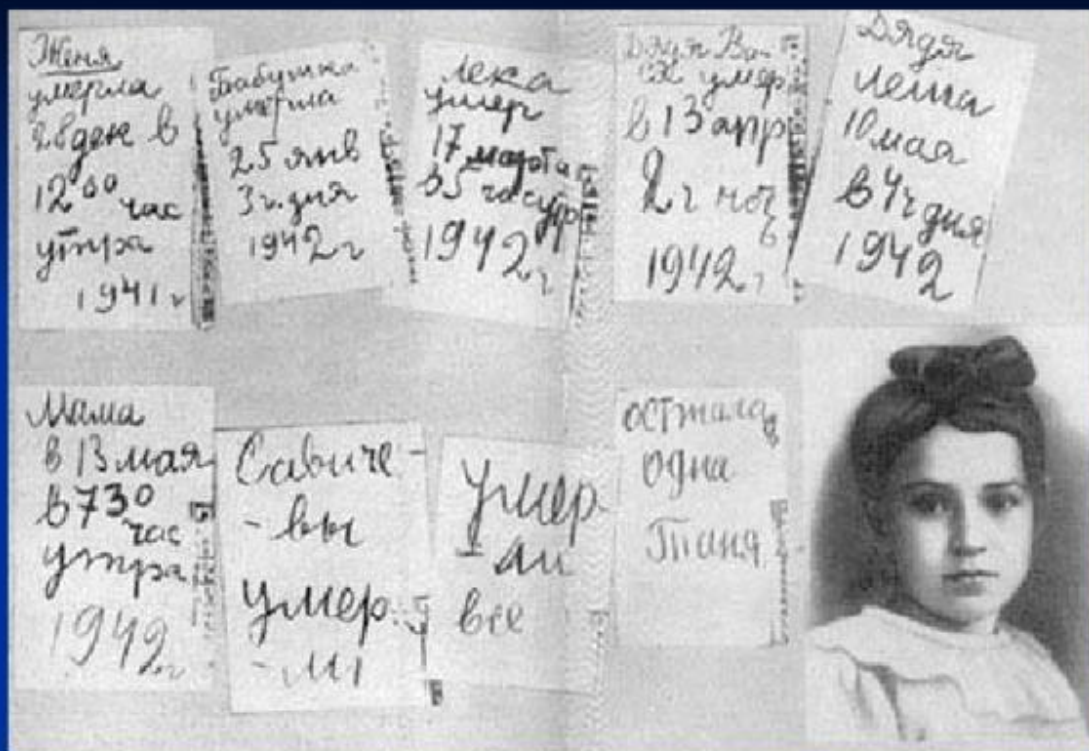 Женя
умерла
28 дек в
12 00 час
утра
1941 г
Бабушка
умерла
25 янв
3 ч. дня
1942 г
Лека
умер
17 марта
в 5 час утр
1942 г
Дядя Ва-
ся умер
в 13 апр
2 ч ноч
ь
1942 г
Дядя
Леша
10 мая
в 4 ч дня
1942
Мама
в 13 мая
в 7 30
час
утра
1942 г
Савиче-
-вы
умер-
-ли
Умер-
-ли
все
одна
Таня